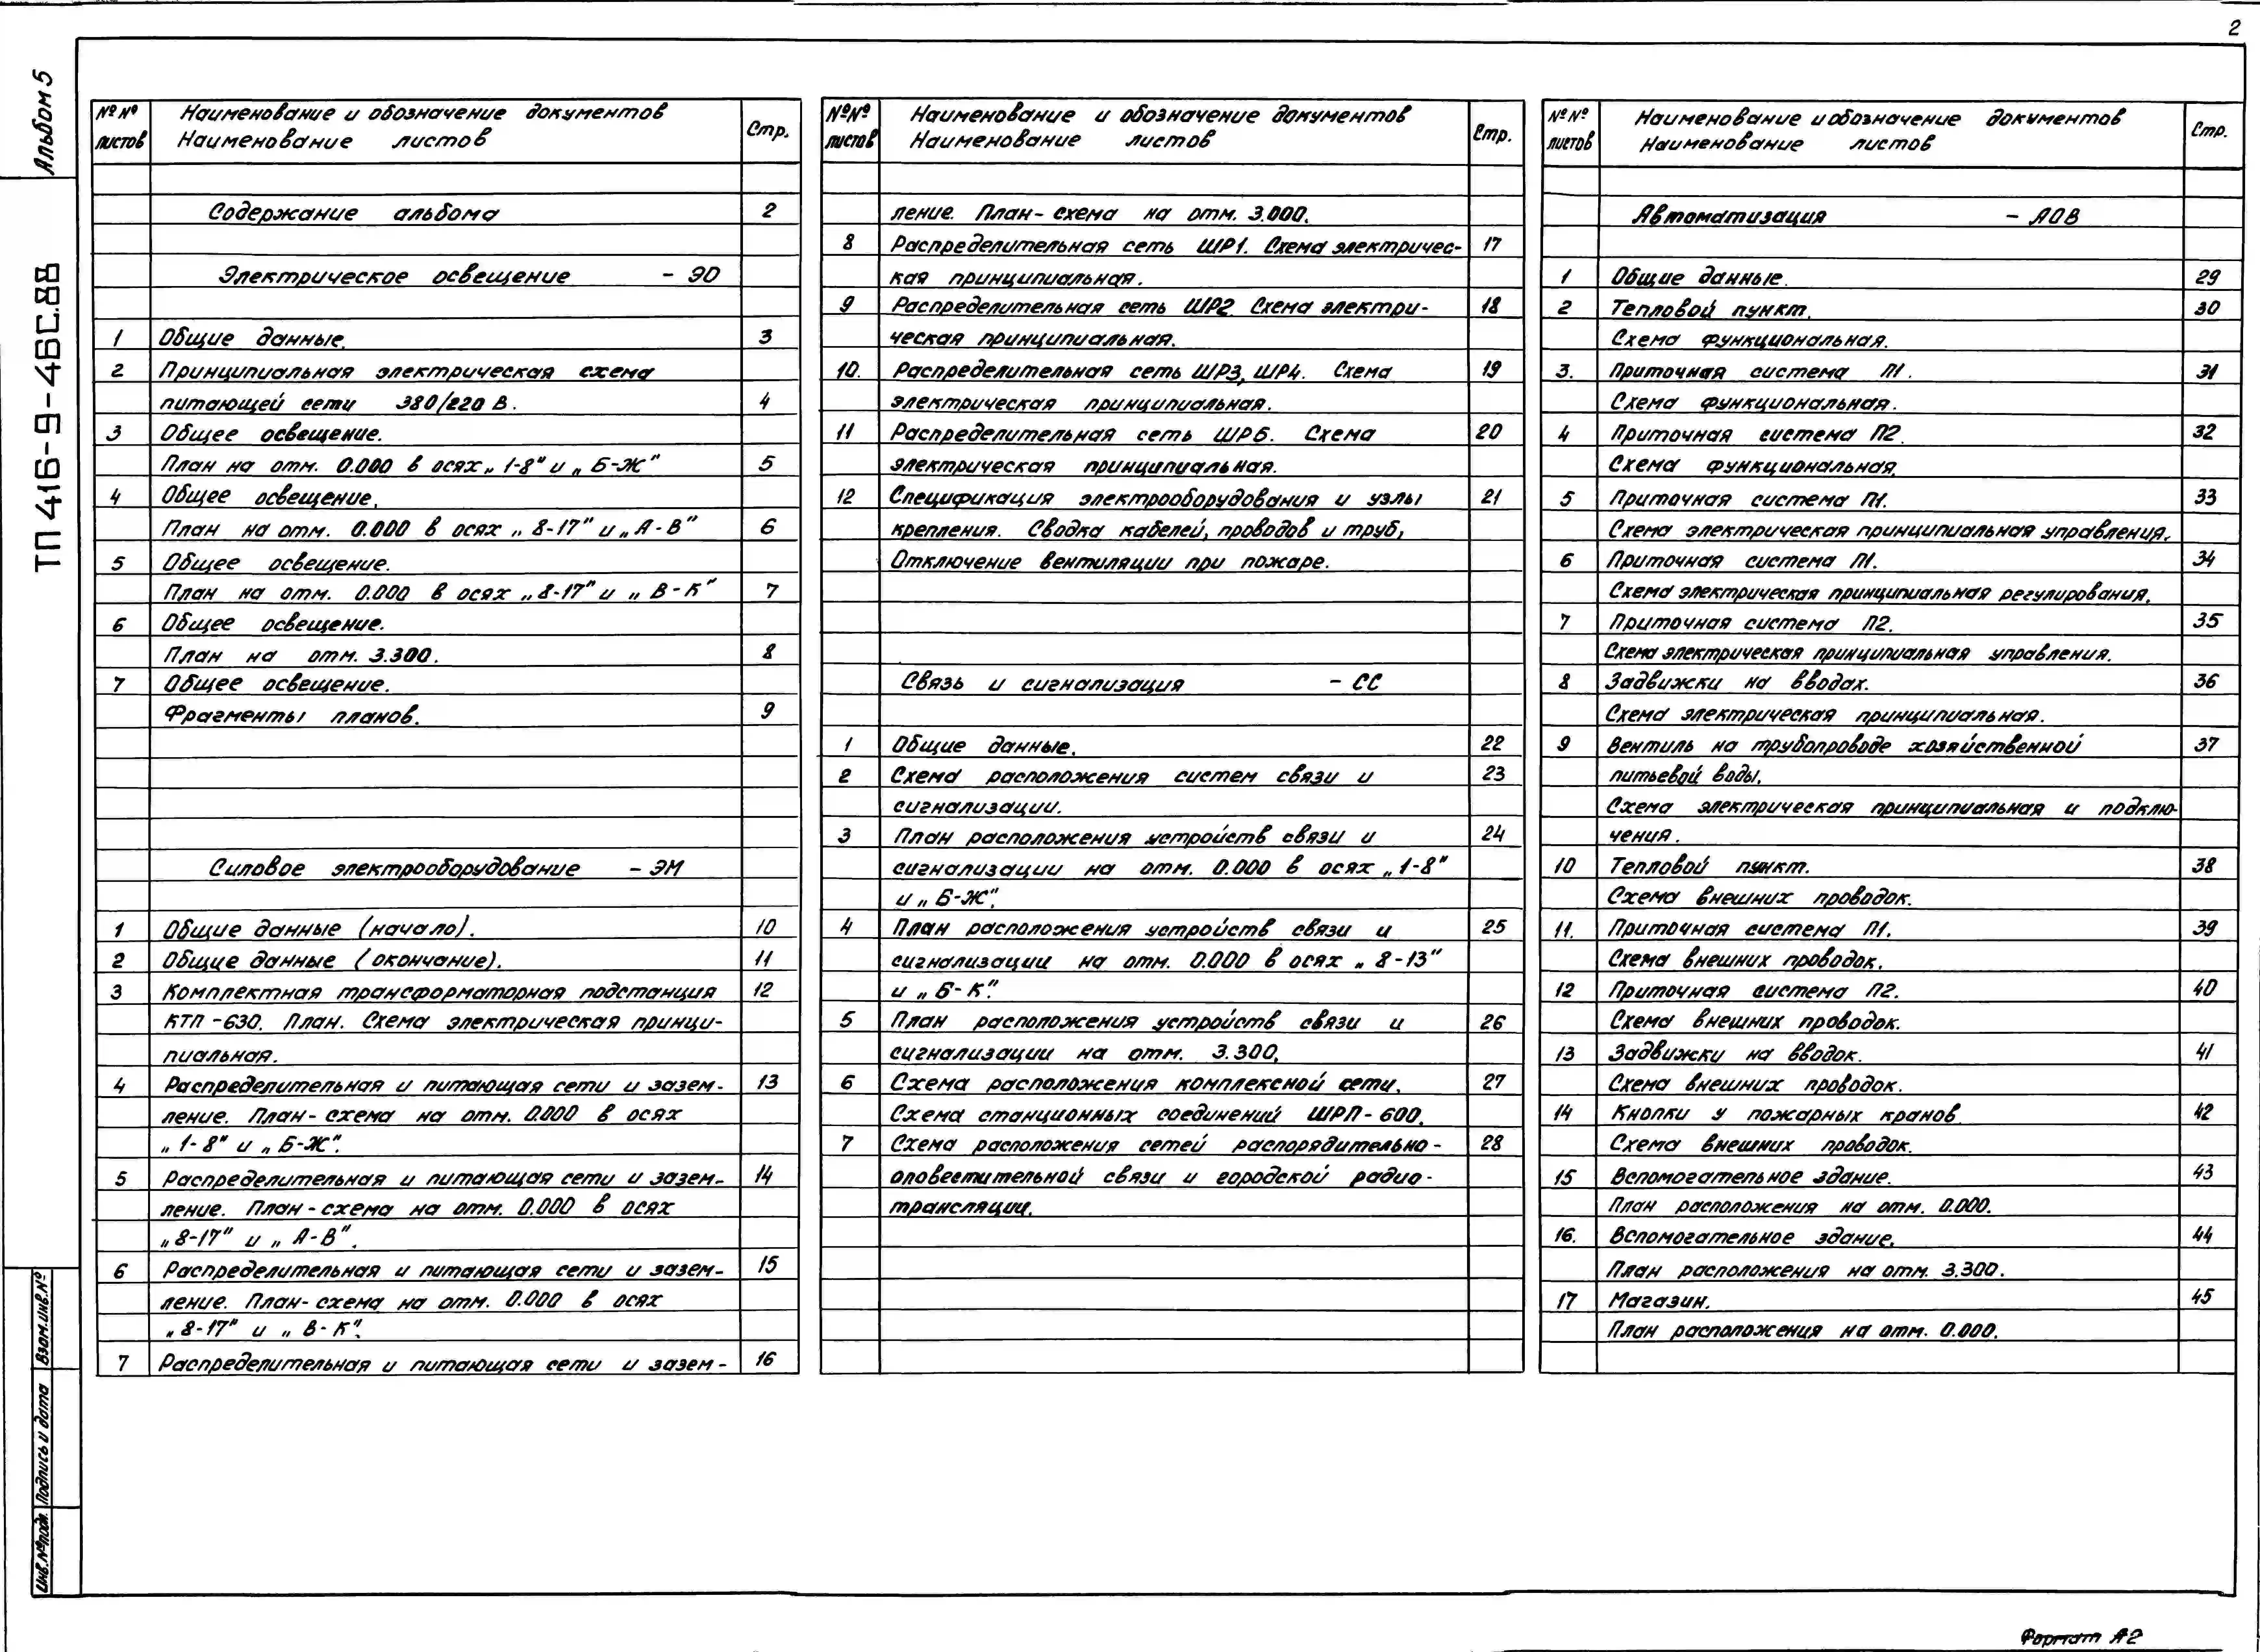 2
Альбом 5
ТП 416-9-46С.88
№№ листов
Наименование и обозначение документов
Наименование листов
Стр.
Содержание альбома 2
Электрическое освещение - ЭО
1 Общие данные. 3
2 Принципиальная электрическая схема
питающей сети 380/220 В. 4
3 Общее освещение.
План на отм. 0.000 в осях „1-8" и „Б-Ж" 5
4 Общее освещение.
План на отм. 0.000 в осях „8-17" и „А-В" 6
5 Общее освещение.
План на отм. 0.000 в осях „8-17" и „В-К" 7
6 Общее освещение.
План на отм. 3.300. 8
7 Общее освещение.
Фрагменты планов. 9
Силовое электрооборудование - ЭМ
1 Общие данные (начало). 10
2 Общие данные (окончание). 11
3 Комплектная трансформаторная подстанция 12
КТП-630. План. Схема электрическая принци-
пиальная.
4 Распределительная и питающая сети и зазем- 13
ление. План-схема на отм. 0.000 в осях
„1-8" и „Б-Ж".
5 Распределительная и питающая сети и зазем- 14
ление. План-схема на отм. 0.000 в осях
„8-17" и „А-В".
6 Распределительная и питающая сети и зазем- 15
ление. План-схема на отм. 0.000 в осях
„8-17" и „В-К".
7 Распределительная и питающая сети и зазем- 16
№№ листов
Наименование и обозначение документов
Наименование листов
Стр.
ление. План-схема на отм. 3.000.
8 Распределительная сеть ШР1. Схема электричес- 17
кая принципиальная.
9 Распределительная сеть ШР2. Схема электри- 18
ческая принципиальная.
10. Распределительная сеть ШР3, ШР4. Схема 19
электрическая принципиальная.
11 Распределительная сеть ШР5. Схема 20
электрическая принципиальная.
12 Спецификация электрооборудования и узлы 21
крепления. Сводка кабелей, проводов и труб,
Отключение вентиляции при пожаре.
Связь и сигнализация - СС
1 Общие данные. 22
2 Схема расположения систем связи и 23
сигнализации.
3 План расположения устройств связи и 24
сигнализации на отм. 0.000 в осях „1-8"
и „Б-Ж".
4 План расположения устройств связи и 25
сигнализации на отм. 0.000 в осях „8-13"
и „Б-К".
5 План расположения устройств связи и 26
сигнализации на отм. 3.300.
6 Схема расположения комплексной сети. 27
Схема станционных соединений ШРП-600.
7 Схема расположения сетей распорядительно- 28
оповестительной связи и городской радио-
трансляции.
№№ листов
Наименование и обозначение документов
Наименование листов
Стр.
Автоматизация - АОВ
1 Общие данные. 29
2 Тепловой пункт. 30
Схема функциональная.
3. Приточная система П1. 31
Схема функциональная.
4 Приточная система П2. 32
Схема функциональная.
5 Приточная система П1. 33
Схема электрическая принципиальная управления.
6 Приточная система П1. 34
Схема электрическая принципиальная регулирования.
7 Приточная система П2. 35
Схема электрическая принципиальная управления.
8 Задвижки на вводах. 36
Схема электрическая принципиальная.
9 Вентиль на трубопроводе хозяйственной 37
питьевой воды.
Схема электрическая принципиальная и подклю-
чения.
10 Тепловой пункт. 38
Схема внешних проводок.
11. Приточная система П1. 39
Схема внешних проводок.
12 Приточная система П2. 40
Схема внешних проводок.
13 Задвижки на вводок. 41
Схема внешних проводок.
14 Кнопки у пожарных кранов 42
Схема внешних проводок.
15 Вспомогательное здание. 43
План расположения на отм. 0.000.
16. Вспомогательное здание. 44
План расположения на отм. 3.300.
17 Магазин. 45
План расположения на отм. 0.000.
Взам.инв.№
Подпись и дата
Инв.№подл.
Формат А2